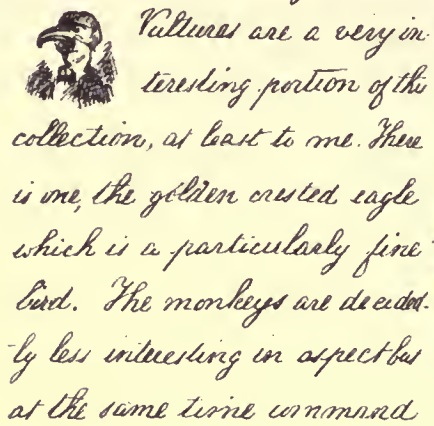 Vultures are a very in-
teresting portion of the
collection, at least to me. There
is one, the golden crested eagle
which is a particularly fine
bird. The monkeys are decided-
-ly less interesting in aspect but
at the same time command